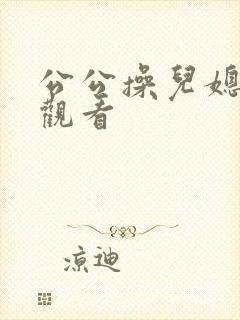 公公操兒媳
觀看
涼迪